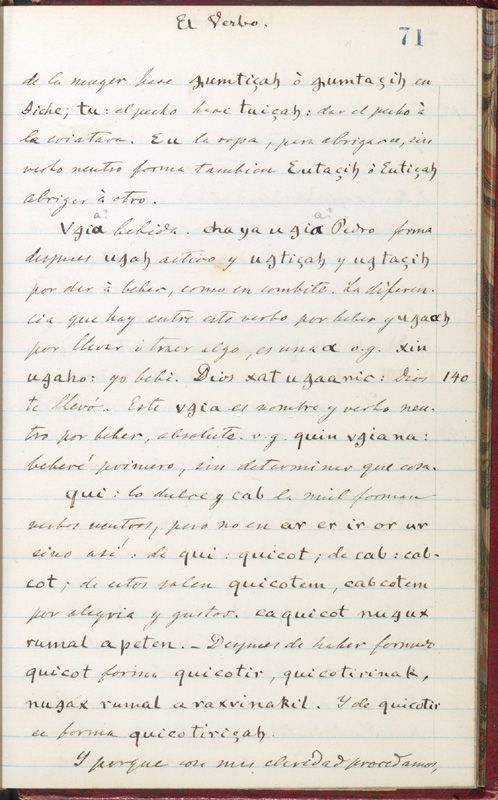 El Verbo.
71
de la muger hace gumtiçah ò gumtaçih en
Diche; tu: el pecho hace tuiçah: dar el pecho à
la criatura. Eu la ropa, para abrigarse, sin
verbo neutro forma tambien Eutaçih ò Eutiçah
abrigar à otro.
Vgia bebida. cha ya u gia Pedro forma
despues ugah activo y ugtiçah y ugtaçih
por dar à beber, como en combite. La diferen-
cia que hay entre este verbo por beber y ugaah
por llevar ò traer algo, es una a v.g. xin
ugaho: yo bebi. Dios xat ugaanic: Dios 140
te llevó. Este vgia es nombre y verbo neu-
tro por beber, absoluto. v.g. quin vgiana:
beberé primero, sin determinar que cosa.
qui: lo dulce y cab la miel forman
verbos neutros, pero no en ar er ir or ur
sino asi: de qui: quicot; de cab: cab-
cot; de estos salen quicotem, cabcotem
por alegria y gustos. caquicot nugux
rumal apeten. - Despues de haber formado
quicot forma quicotir, quicotirinak,
nugax rumal a raxvinakil. Y de quicotir
se forma quicotiriçah.
Y porque con mas claridad procedamos,